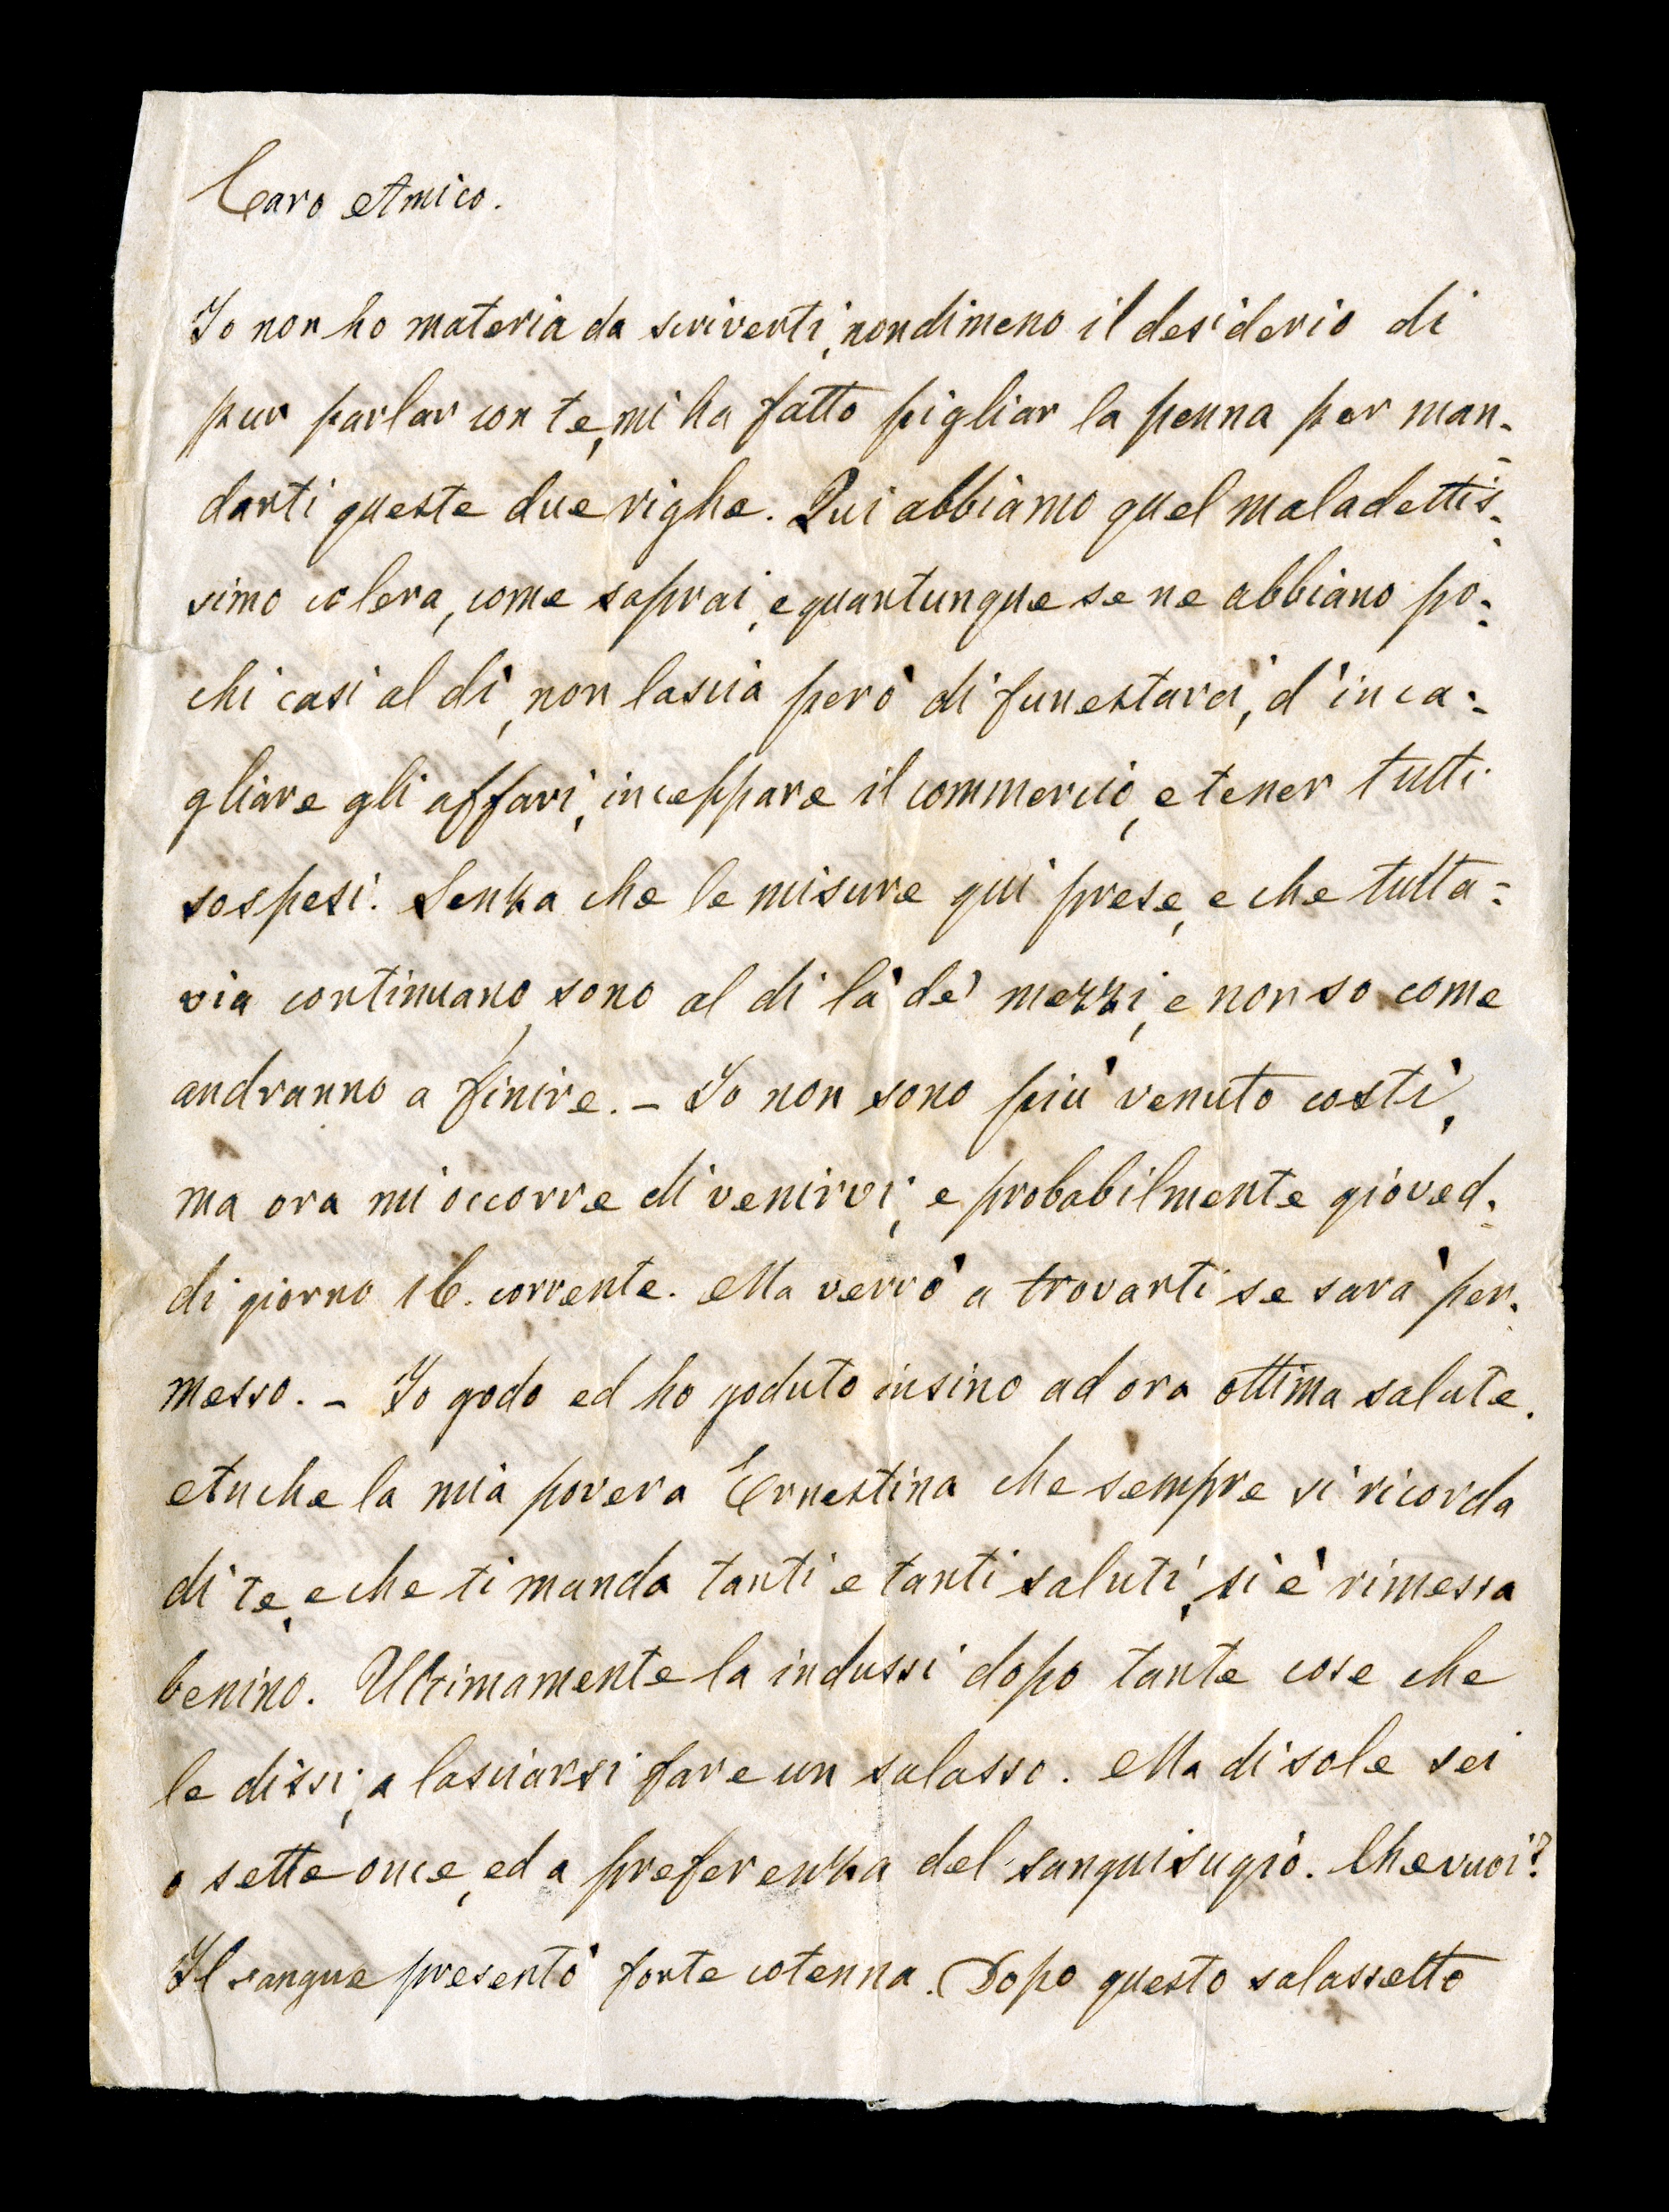 Caro Amico.
Io non ho materia da scriverti, nondimeno il desiderio di
pur parlar con te, mi ha fatto pigliar la penna per man=
darti queste due righe. Qui abbiamo quel maladettis=
simo colera, come saprai, e quantunque se ne abbiano po=
chi casi al dì, non lascia però di funestarci, d'inca=
gliare gli affari, inceppare il commercio, e tener tutti
sospesi. Senza che le misure qui prese, e che tutta=
via continuano, sono al di là de' mezzi, e non so come
andranno a finire. – Io non sono più venuto costì,
ma ora mi occorre di venirvi, e probabilmente gioved=
di giorno 16. corrente. Ma verrò a trovarti se sarà per=
messo. – Io godo ed ho goduto insino ad ora ottima salute.
Anche la mia povera Ernestina che sempre si ricorda
di te, e che ti manda tanti e tanti saluti, si è rimessa
benino. Ultimamente la indussi dopo tante cose che
le dissi, a lasciarsi fare un salasso. Ma di sole sei
o sette once, ed a preferenza del sanguisugio. Che vuoi?
Il sangue presentò forte cotenna. Dopo questo salassetto